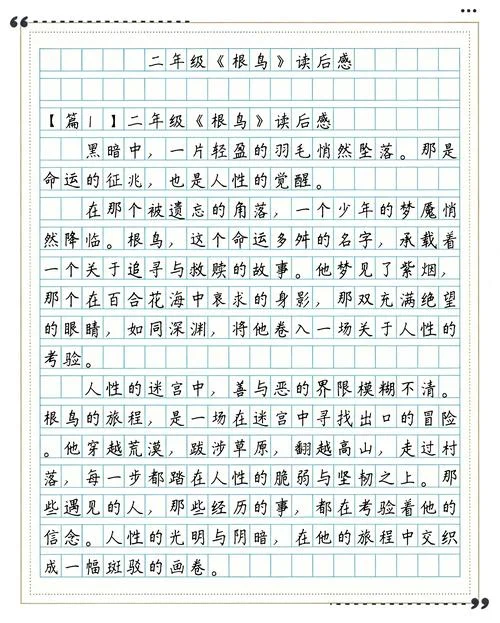 二年级《根鸟》读后感
【篇1】二年级《根鸟》读后感
黑暗中，一片轻盈的羽毛悄然坠落。那是
命运的征兆，也是人性的觉醒。
在那个被遗忘的角落，一个少年的梦魇悄
然降临。根鸟，这个命运多舛的名字，承载着
一个关于追寻与救赎的故事。他梦见了紫烟，
那个在百合花海中哀求的身影，那双充满绝望
的眼睛，如同深渊，将他卷入一场关于人性的
考验。
人性的迷宫中，善与恶的界限模糊不清。
根鸟的旅程，是一场在迷宫中寻找出口的冒险
。他穿越荒漠，跋涉草原，翻越高山，走过村
落，每一步都踏在人性的脆弱与坚韧之上。那
些遇见的人，那些经历的事，都在考验着他的
信念。人性的光明与阴暗，在他的旅程中交织
成一幅斑驳的画卷。